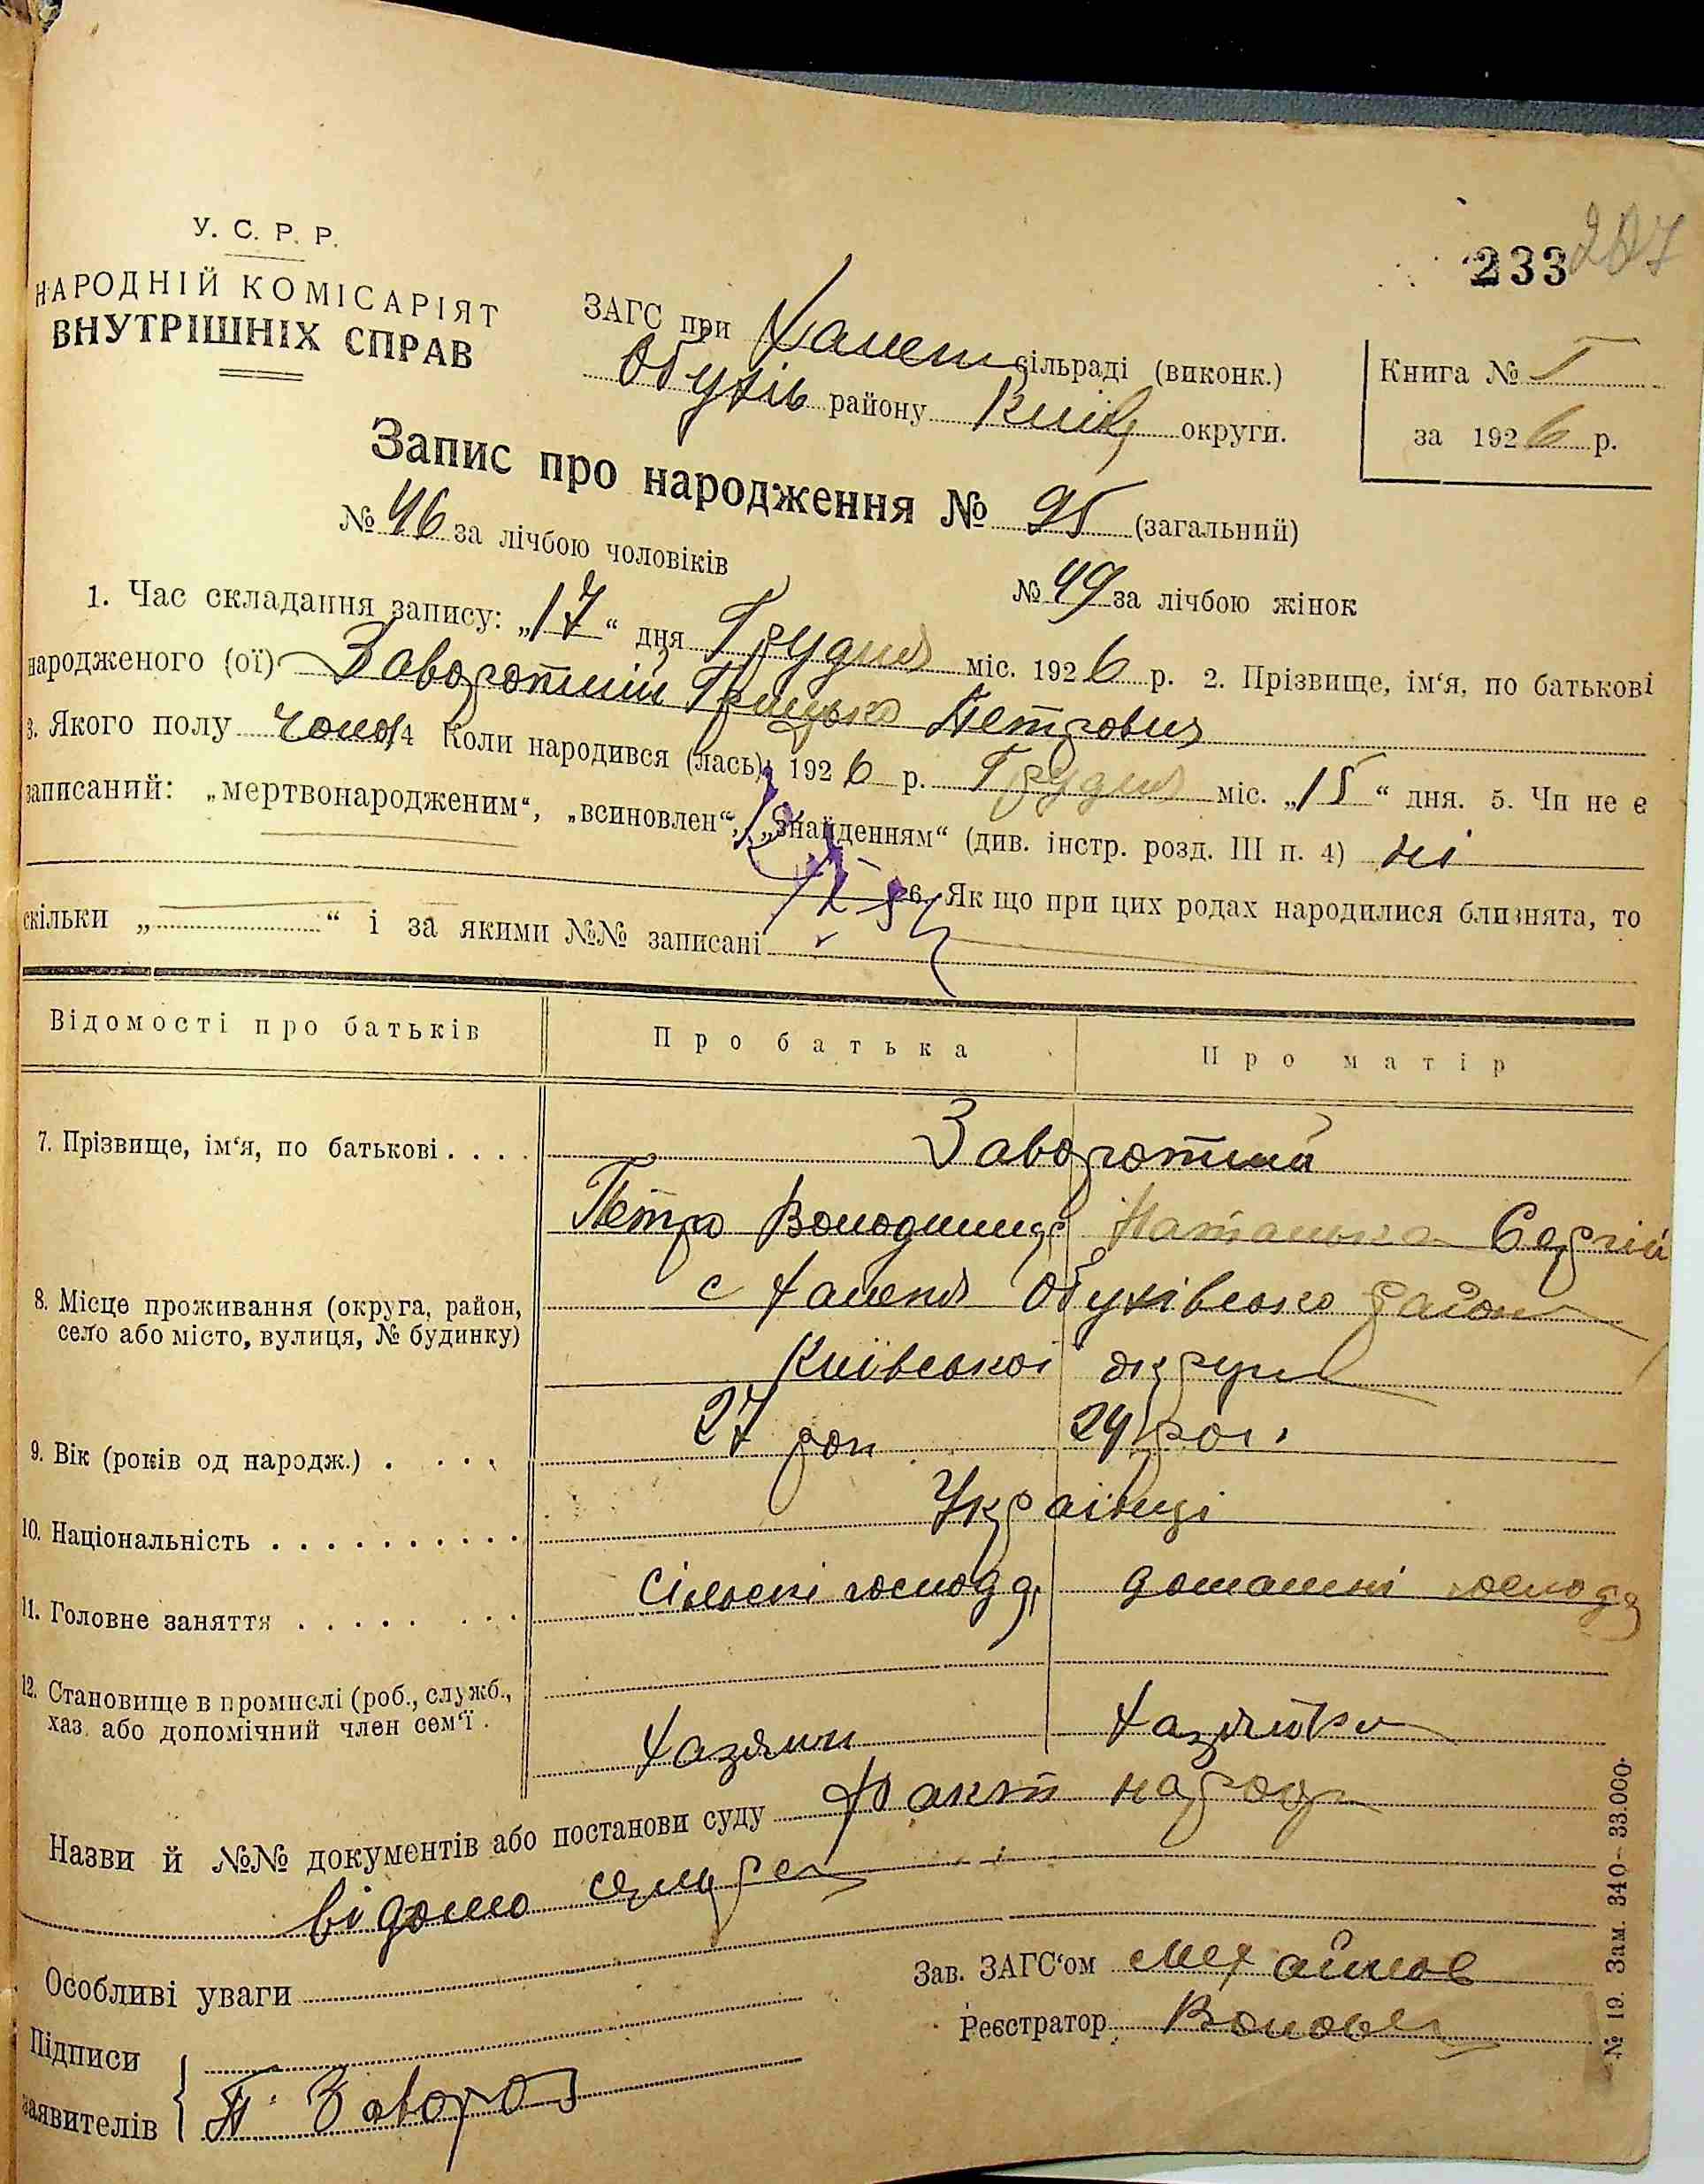 У. С. Р. Р.
НАРОДНІЙ КОМІСАРІЯТ
ВНУТРІШНІХ СПРАВ
233
ЗАГС при Халеп сільраді (виконк.)
Обухів району Київ округи.
Книга № I
за 1926 р.
Запис про народження № 95 (загальний)
№ 46 за лічбою чоловіків
№ 49 за лічбою жінок
1. Час складання запису: „17“ дня Грудня міс. 1926 р. 2. Прізвище, ім‘я, по батькові
народженого (ої) Заворотний Грицько Петрович
3. Якого полу чолов 4 Коли народився (лась): 1926 р. Грудня міс. „15“ дня. 5. Чи не є
записаний: „мертвонародженим“, „всиновлен“, „знайденням“ (див. інстр. розд. III п. 4) ні
6. Як що при цих родах народилися близнята, то
скільки „ “ і за якими №№ записані
Відомості про батьків
Про батька
Про матір
7. Прізвище, ім‘я, по батькові . . . .
Заворотний
Петро Володимир Наталка Сергій
8. Місце проживання (округа, район,
село або місто, вулиця, № будинку)
с Халепя Обухівсько району
Київської округи
9. Вік (років од народж.) . . . .
27 рок 24 рок
10. Національність . . . . . . . . . .
Українці
11. Головне заняття . . . . . . . .
Сільскі господ домашні господ
12. Становище в промислі (роб., служб.,
хаз. або допомічний член сем‘ї .
Хазяин Хазяйка
Назви й №№ документів або постанови суду факт народж
відомо
Особливі уваги
Зав. ЗАГС‘ом
Реєстратор
Підписи
заявителів { П. Заворот
№ 19. Зам. 340–33.000.